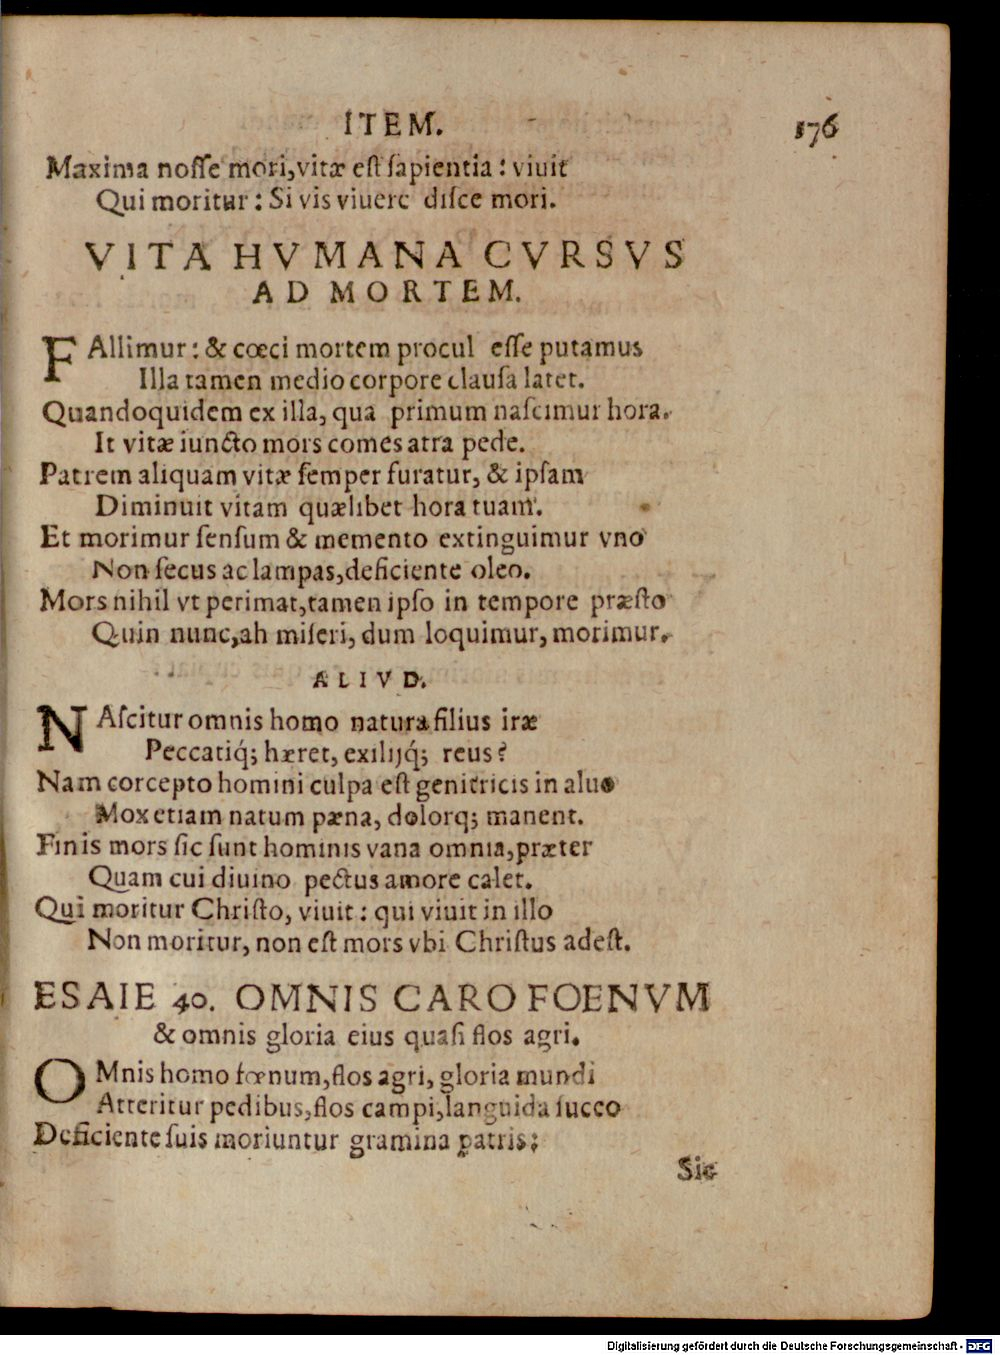 ITEM. 176
Maxima noſſe mori,vitæ eſt ſapientia : viuit
Qui moritur : Si vis viuere diſce mori.
VITA HVMANA CVRSVS
AD MORTEM.
FAllimur : & cœci mortem procul eſſe putamus
Illa tamen medio corpore clauſa latet.
Quandoquidem ex illa, qua primum naſcimur hora.
It vitæ iuncto mors comes atra pede.
Patrem aliquam vitæ ſemper furatur, & ipſam
Diminuit vitam quælibet hora tuam.
Et morimur ſenſum & memento extinguimur vno
Non ſecus ac lampas,deficiente oleo.
Mors nihil vt perimat,tamen ipſo in tempore præſto
Quin nunc,ah miſeri, dum loquimur, morimur.
ALIVD.
NAſcitur omnis homo natura filius iræ
Peccatiq́; hæret, exilijq́; reus?
Nam corcepto homini culpa eſt genitricis in aluo
Mox etiam natum pæna, dolorq; manent.
Finis mors ſic ſunt hominis vana omnia,præter
Quam cui diuino pectus amore calet.
Qui moritur Chriſto, viuit : qui viuit in illo
Non moritur, non eſt mors vbi Chriſtus adeſt.
ESAIE 40. OMNIS CARO FOENVM
& omnis gloria eius quaſi flos agri.
OMnis homo fœnum,flos agri, gloria mundi
Atteritur pedibus,flos campi,languida ſucco
Deficiente ſuis moriuntur gramina patris;
Sic
Digitalisierung gefördert durch die Deutsche Forschungsgemeinschaft - DFG